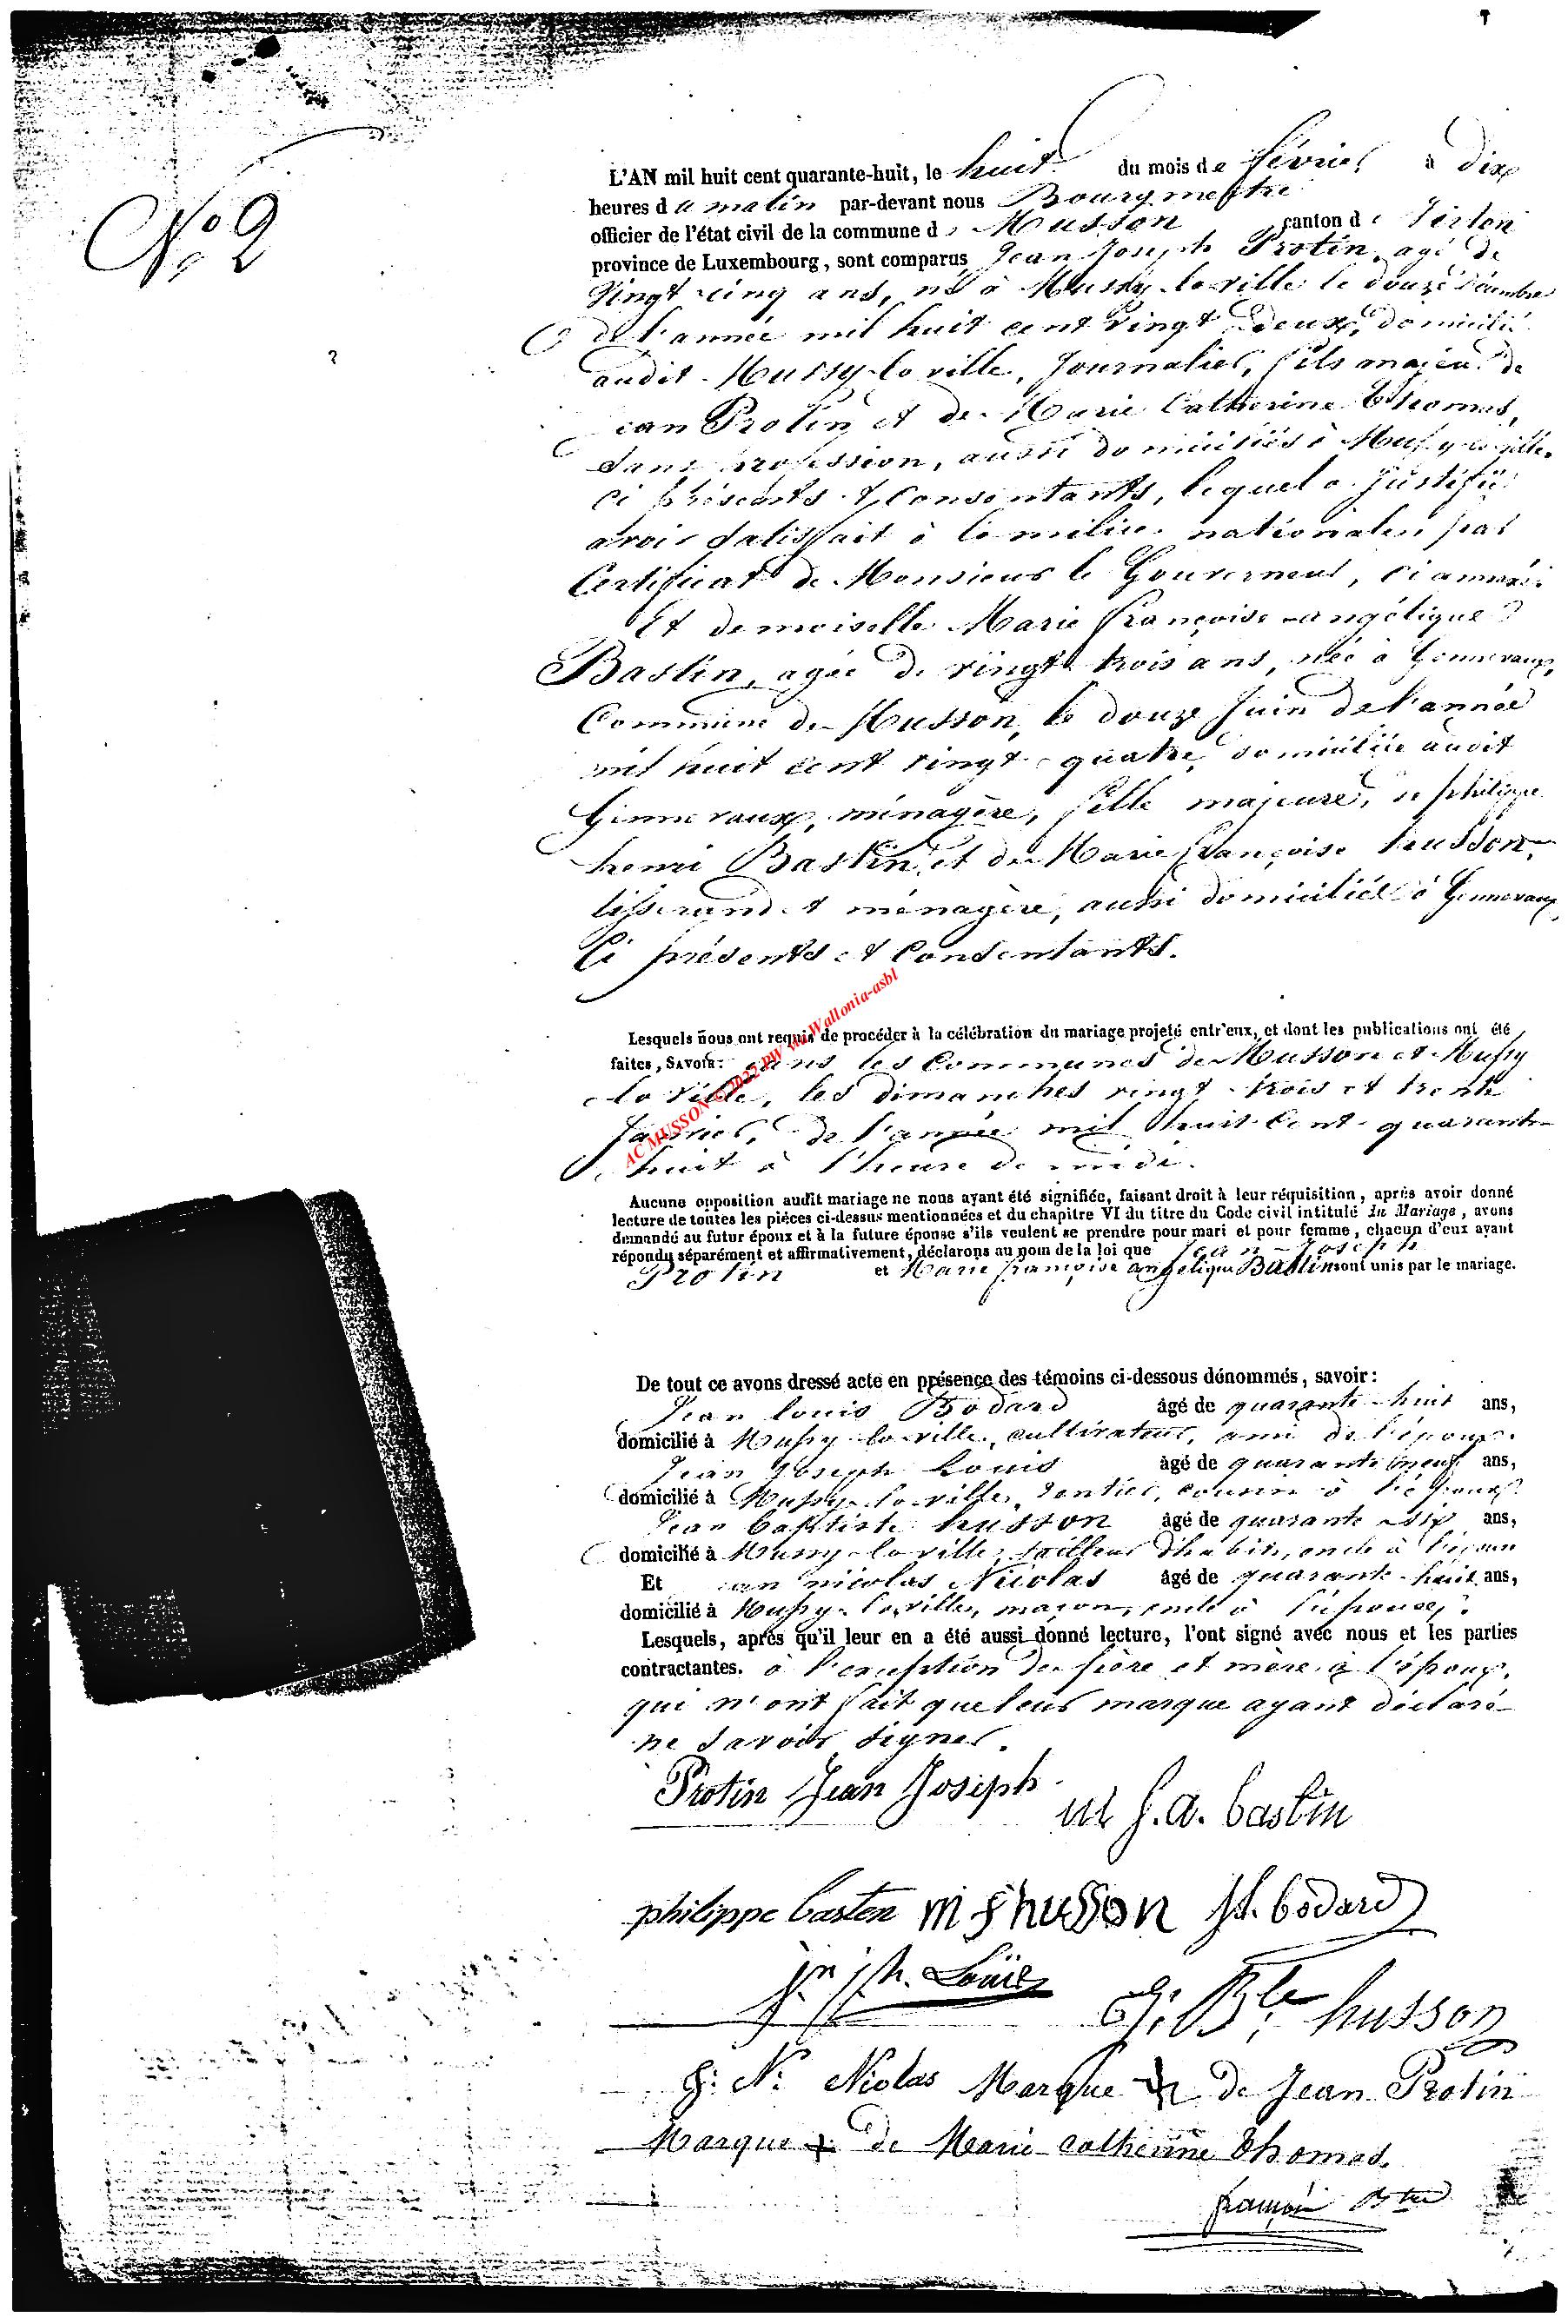 N° 2
L'AN mil huit cent quarante-huit, le huit du mois de février à dix
heures du matin par-devant nous Bourgmestre
officier de l'état civil de la commune de Musson canton de Virton
province de Luxembourg, sont comparus Jean Joseph Protin, agé de
Vingt cinq ans, né à Mussy-la-ville le douze décembre
de l'année mil huit cent vingt deux, domicilié
audit Mussy-la ville, Journalier, fils majeur de
Jean Protin et de Marie Catherine Thomas,
sans profession, aussi domiciliés à Mussy la ville,
ci présents et Consentants, lequel a Justifié
avoir satisfait à la milice nationale, par
Certificat de Monsieur le Gouverneur, ci annexé.
Et demoiselle Marie françoise angélique
Bastin, agée de vingt trois ans, née à Gennevaux,
Commune de Musson, le douze Juin de l'année
mil huit cent vingt quatre, domiciliée audit
Gennevaux, ménagère, fille majeure, de philippe
henri Bastin, et de Marie françoise husson,
tisserand et ménagère, aussi domiciliés à Gennevaux,
Ci présents et Consentants.
Lesquels nous ont requis de procéder à la célébration du mariage projeté entr'eux, et dont les publications ont été
faites, SAVOIR: dans les Communes de Musson et Mussy
la Ville, les dimanches vingt trois et trente
Janvier, de l'année mil huit Cent quarante
huit à l'heure de midi.
AC MUSSON ©2022 PW via Wallonia-asbl
Aucune opposition audit mariage ne nous ayant été signifiée, faisant droit à leur réquisition, après avoir donné
lecture de toutes les pièces ci-dessus mentionnées et du chapitre VI du titre du Code civil intitulé du Mariage, avons
demandé au futur époux et à la future épouse s'ils veulent se prendre pour mari et pour femme, chacun d'eux ayant
répondu séparément et affirmativement, déclarons au nom de la loi que Jean-Joseph
Protin et Marie françoise angélique Bastin sont unis par le mariage.
De tout ce avons dressé acte en présence des témoins ci-dessous dénommés, savoir:
Jean louis Bodard âgé de quarante huit ans,
domicilié à Mussy-la-ville, cultivateur, ami de l'époux.
Jean Joseph Louis âgé de quarante neuf ans,
domicilié à Mussy-la-ville, rentier, cousin à l'époux
Jean baptiste husson âgé de quarante-six ans,
domicilié à Mussy-la ville, tailleur d'habits, oncle à
Et Jean nicolas Nicolas âgé de quarante huit ans,
domicilié à Mussy-la ville, maçon, oncle à l'épouse.
Lesquels, après qu'il leur en a été aussi donné lecture, l'ont signé avec nous et les parties
contractantes. à l'exception des père et mère à l'époux,
qui n'ont fait que leur marque ayant déclaré
ne savoir signer.
Protin Jean Joseph
M f. a. bastin
philippe basten m f husson J L. bodard
jn jh. Louis
J. Bte husson
J: N: Nicolas Marque + de Jean Protin
Marque + de Marie catherine Thomas.